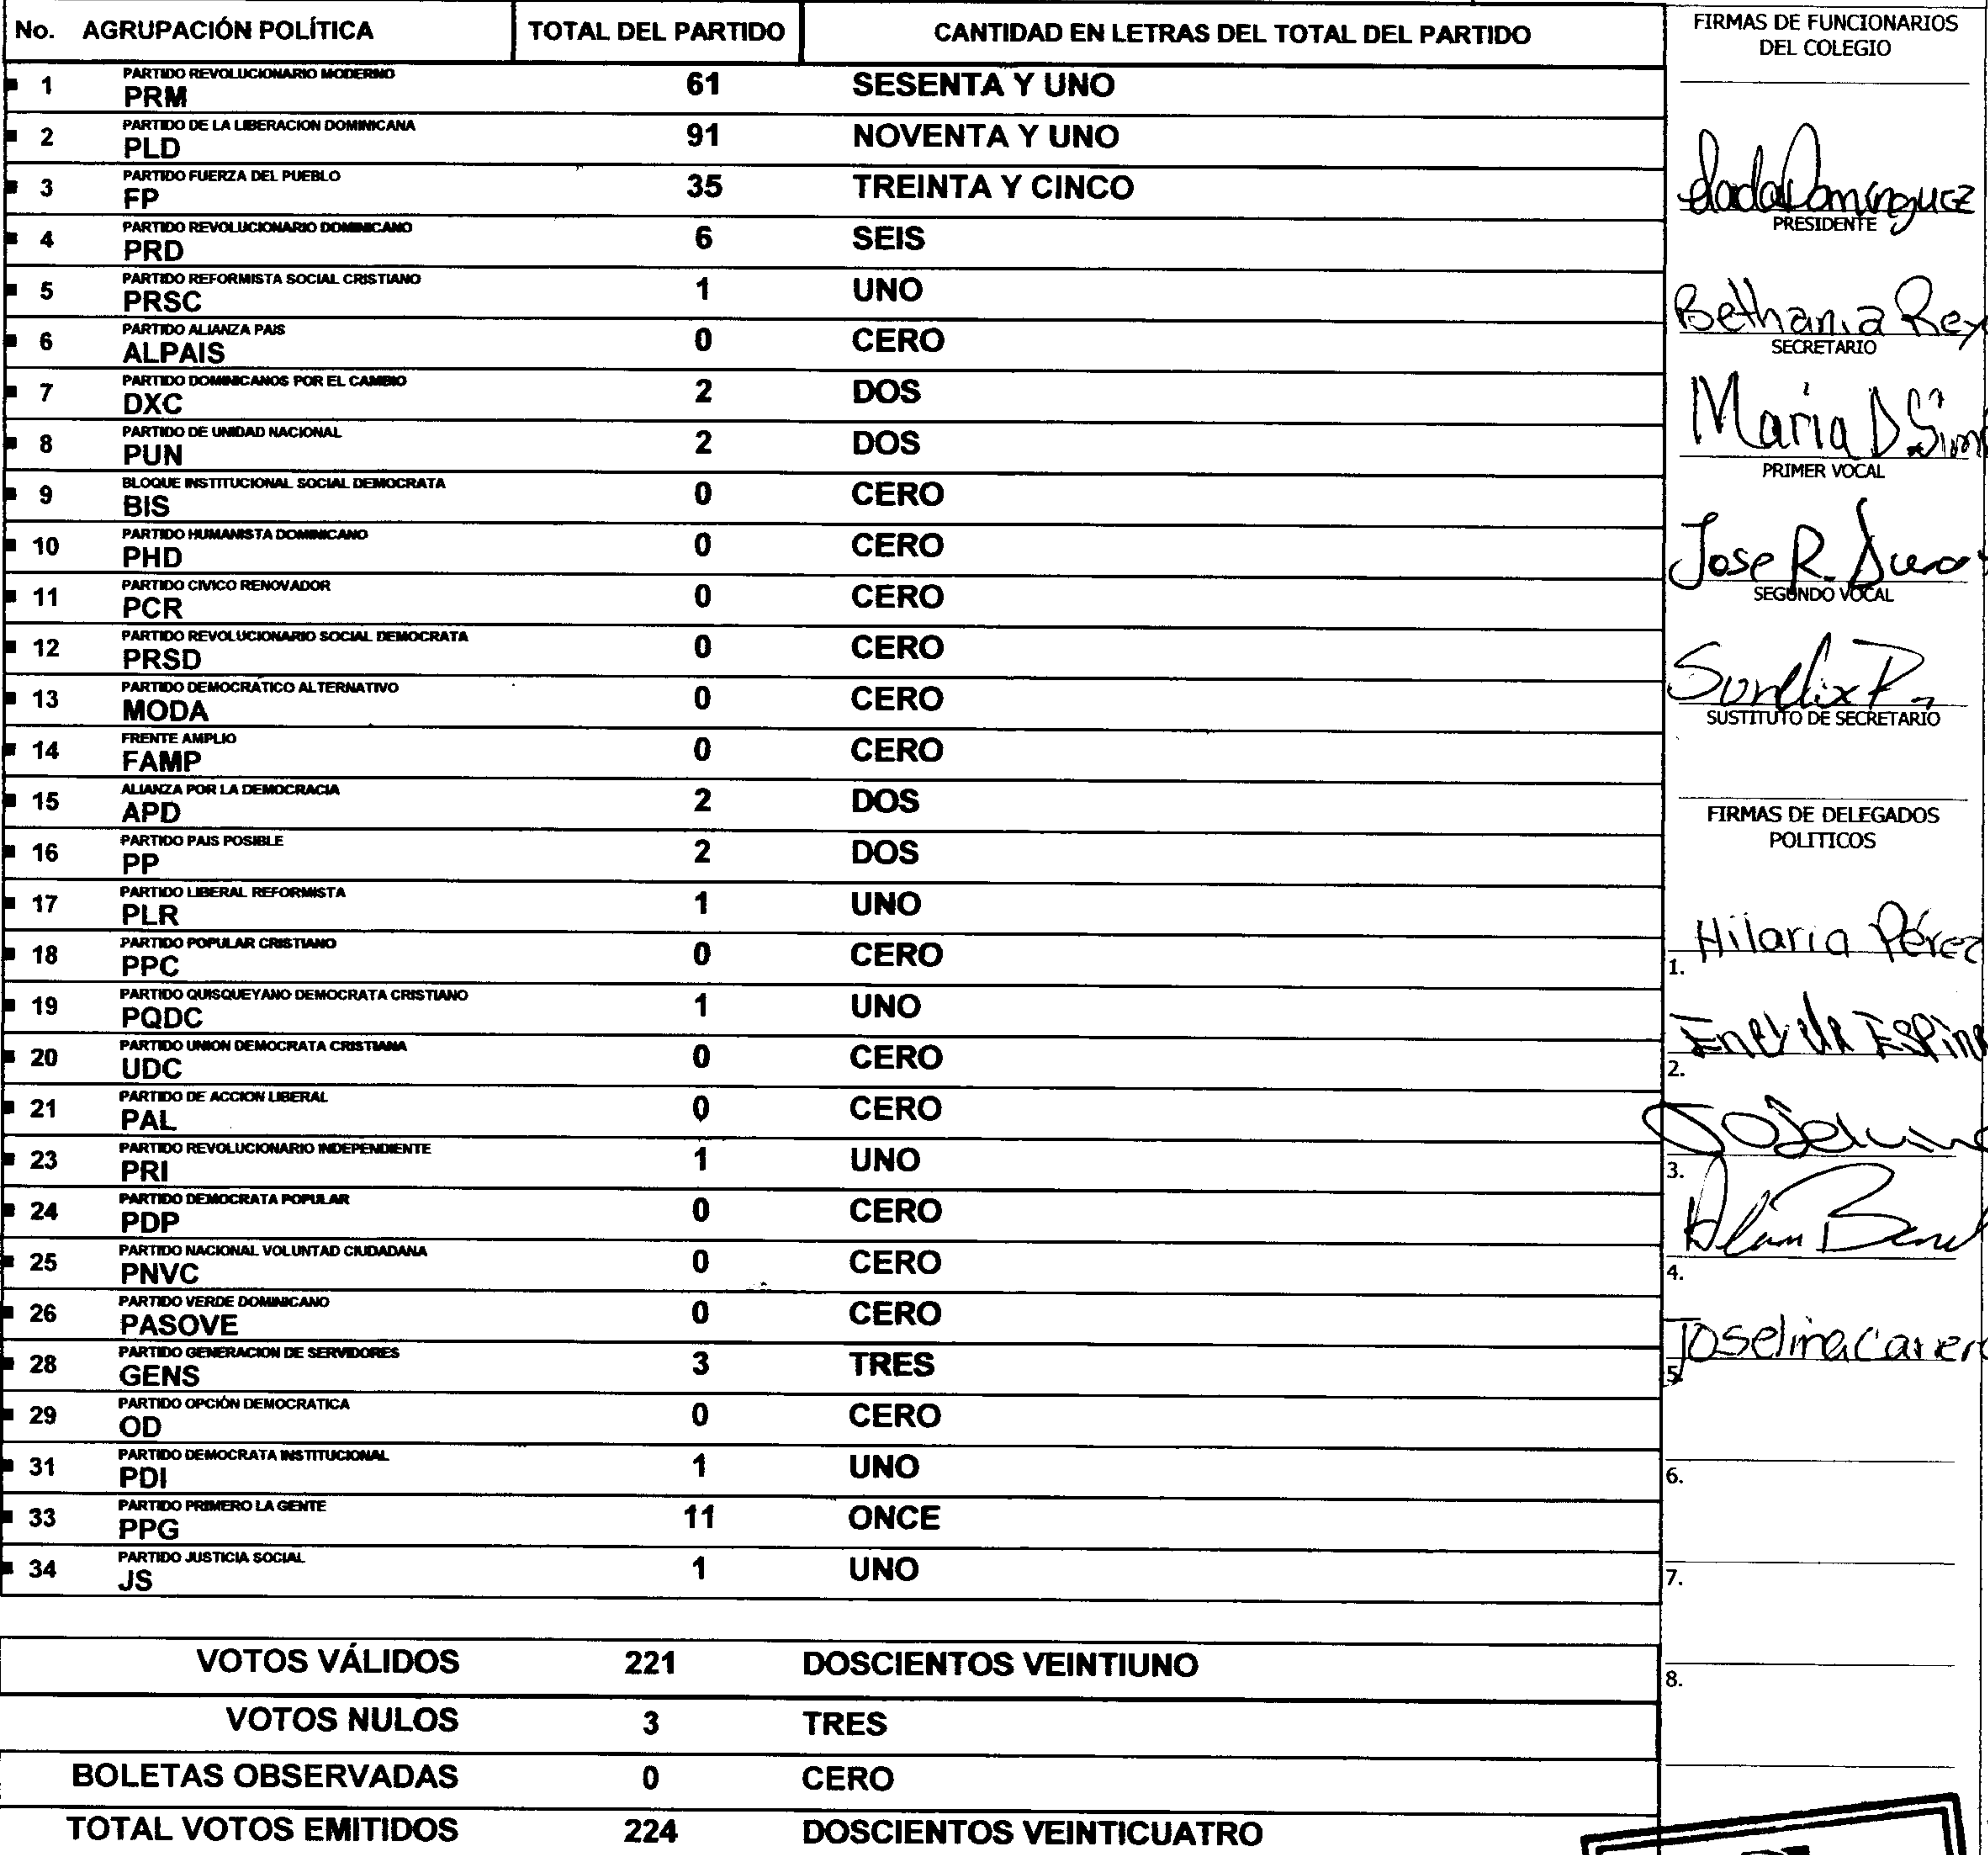 No. AGRUPACIÓN POLÍTICA TOTAL DEL PARTIDO CANTIDAD EN LETRAS DEL TOTAL DEL PARTIDO
PARTIDO REVOLUCIONARIO MODERNO
1 PRM 61 SESENTA Y UNO
PARTIDO DE LA LIBERACION DOMINICANA
2 PLD 91 NOVENTA Y UNO
PARTIDO FUERZA DEL PUEBLO
3 FP 35 TREINTA Y CINCO
PARTIDO REVOLUCIONARIO DOMINICANO
4 PRD 6 SEIS
PARTIDO REFORMISTA SOCIAL CRISTIANO
5 PRSC 1 UNO
PARTIDO ALIANZA PAIS
6 ALPAIS 0 CERO
PARTIDO DOMINICANOS POR EL CAMBIO
7 DXC 2 DOS
PARTIDO DE UNIDAD NACIONAL
8 PUN 2 DOS
BLOQUE INSTITUCIONAL SOCIAL DEMOCRATA
9 BIS 0 CERO
PARTIDO HUMANISTA DOMINICANO
10 PHD 0 CERO
PARTIDO CIVICO RENOVADOR
11 PCR 0 CERO
PARTIDO REVOLUCIONARIO SOCIAL DEMOCRATA
12 PRSD 0 CERO
PARTIDO DEMOCRATICO ALTERNATIVO
13 MODA 0 CERO
FRENTE AMPLIO
14 FAMP 0 CERO
ALIANZA POR LA DEMOCRACIA
15 APD 2 DOS
PARTIDO PAIS POSIBLE
16 PP 2 DOS
PARTIDO LIBERAL REFORMISTA
17 PLR 1 UNO
PARTIDO POPULAR CRISTIANO
18 PPC 0 CERO
PARTIDO QUISQUEYANO DEMOCRATA CRISTIANO
19 PQDC 1 UNO
PARTIDO UNION DEMOCRATA CRISTIANA
20 UDC 0 CERO
PARTIDO DE ACCION LIBERAL
21 PAL 0 CERO
PARTIDO REVOLUCIONARIO INDEPENDIENTE
23 PRI 1 UNO
PARTIDO DEMOCRATA POPULAR
24 PDP 0 CERO
PARTIDO NACIONAL VOLUNTAD CIUDADANA
25 PNVC 0 CERO
PARTIDO VERDE DOMINICANO
26 PASOVE 0 CERO
PARTIDO GENERACION DE SERVIDORES
28 GENS 3 TRES
PARTIDO OPCIÓN DEMOCRATICA
29 OD 0 CERO
PARTIDO DEMOCRATA INSTITUCIONAL
31 PDI 1 UNO
PARTIDO PRIMERO LA GENTE
33 PPG 11 ONCE
PARTIDO JUSTICIA SOCIAL
34 JS 1 UNO
VOTOS VÁLIDOS 221 DOSCIENTOS VEINTIUNO
VOTOS NULOS 3 TRES
BOLETAS OBSERVADAS 0 CERO
TOTAL VOTOS EMITIDOS 224 DOSCIENTOS VEINTICUATRO
FIRMAS DE FUNCIONARIOS
DEL COLEGIO
PRESIDENTE
Bethania Rey
SECRETARIO
Maria D
PRIMER VOCAL
Jose R.
SEGUNDO VOCAL
SUSTITUTO DE SECRETARIO
FIRMAS DE DELEGADOS
POLITICOS
1. Hilaria Pérez
2.
3.
4.
5. Joselina
6.
7.
8.